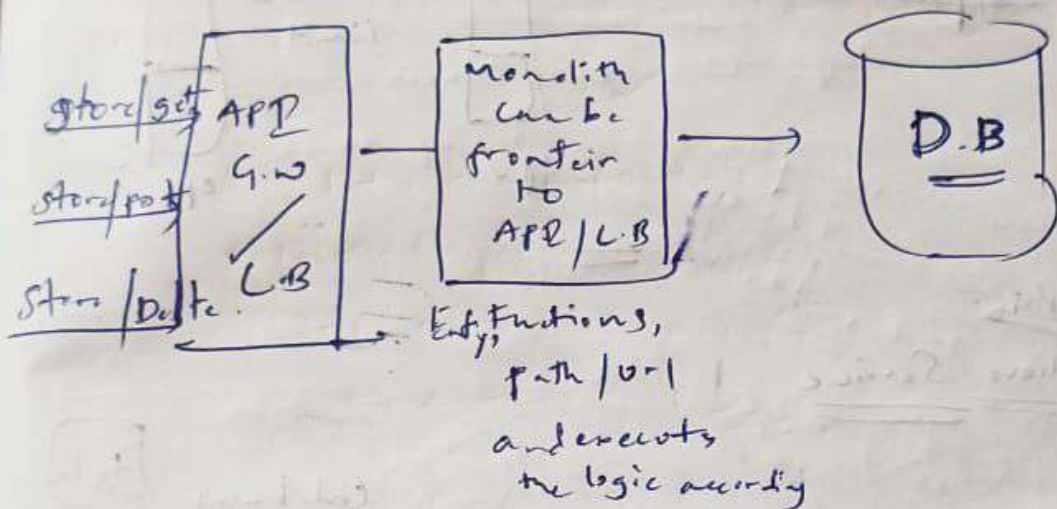 store/get
store/post
Store/Delete
API
G.W
/
L.B
Monolith
can be
fronteir
to
API/L.B
D.B
Functions,
path/url
and executs
the logic according